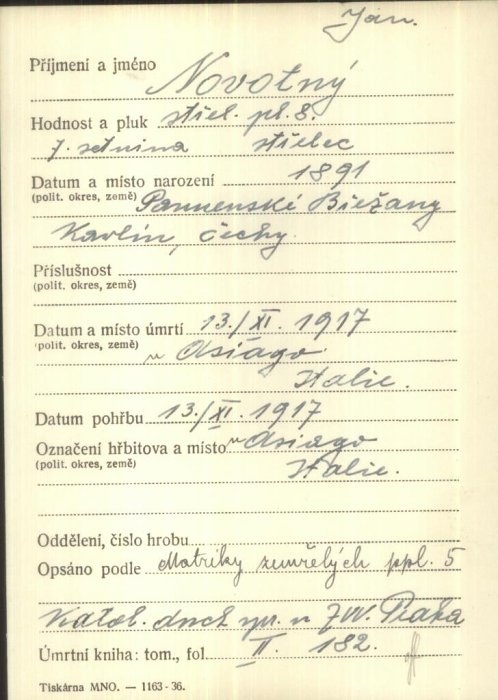 Jan.
Příjmení a jméno Novotný
Hodnost a pluk střel. pl. 8.
7. setnina střelec
Datum a místo narození 1891
(polit. okres, země) Pannenské Břežany
Karlín, Čechy
Příslušnost
(polit. okres, země)
Datum a místo úmrtí 13./XI. 1917
(polit. okres, země) u Asiago
Italie.
Datum pohřbu 13./XI. 1917
Označení hřbitova a místo u Asiago
(polit. okres, země) Italie.
Oddělení, číslo hrobu
Opsáno podle Matriky zemřelých ppl. 5
Katol. duch. spr. u ZVV. Praha
Úmrtní kniha: tom., fol. II. 182.
Tiskárna MNO. — 1163-36.